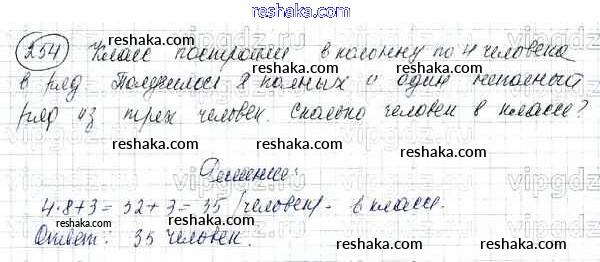 254 Класс построили в колонну по 4 человека
в ряд Получилось 8 полных и один неполный
ряд из трех человек. Сколько человек в классе?
Решение:
4·8+3=32+3=35 (человек) - в классе.
Ответ: 35 человек.
reshaka.com
reshaka.com
reshaka.com
reshaka.com
reshaka.com
reshaka.com
reshaka.com
reshaka.com
reshaka.com
vipgdz.ru